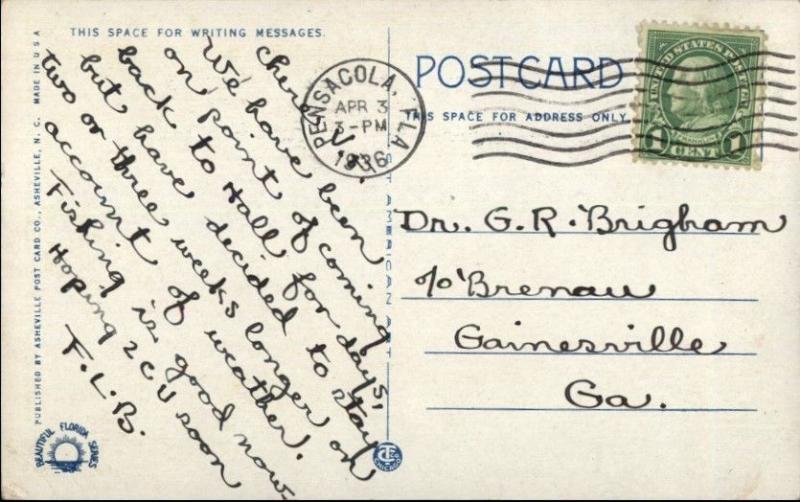 THIS SPACE FOR WRITING MESSAGES.
Chere
We have been
on point of coming
back to Hall for days,
but have decided to stay
two or three weeks longer on
account of weather.
Fishing is good now
Hoping 2 C U soon
F.L.B.
PENSACOLA, FLA
APR 3
3-PM
1936
POSTCARD
THIS SPACE FOR ADDRESS ONLY
UNITED STATES POSTAGE
FRANKLIN
1 CENT 1
Dr. G. R. Brigham
℅ Brenau
Gainesville
Ga.
PUBLISHED BY ASHEVILLE POST CARD CO., ASHEVILLE, N. C. MADE IN U S A
BEAUTIFUL FLORIDA SERIES
AMERICAN ART
CHICAGO